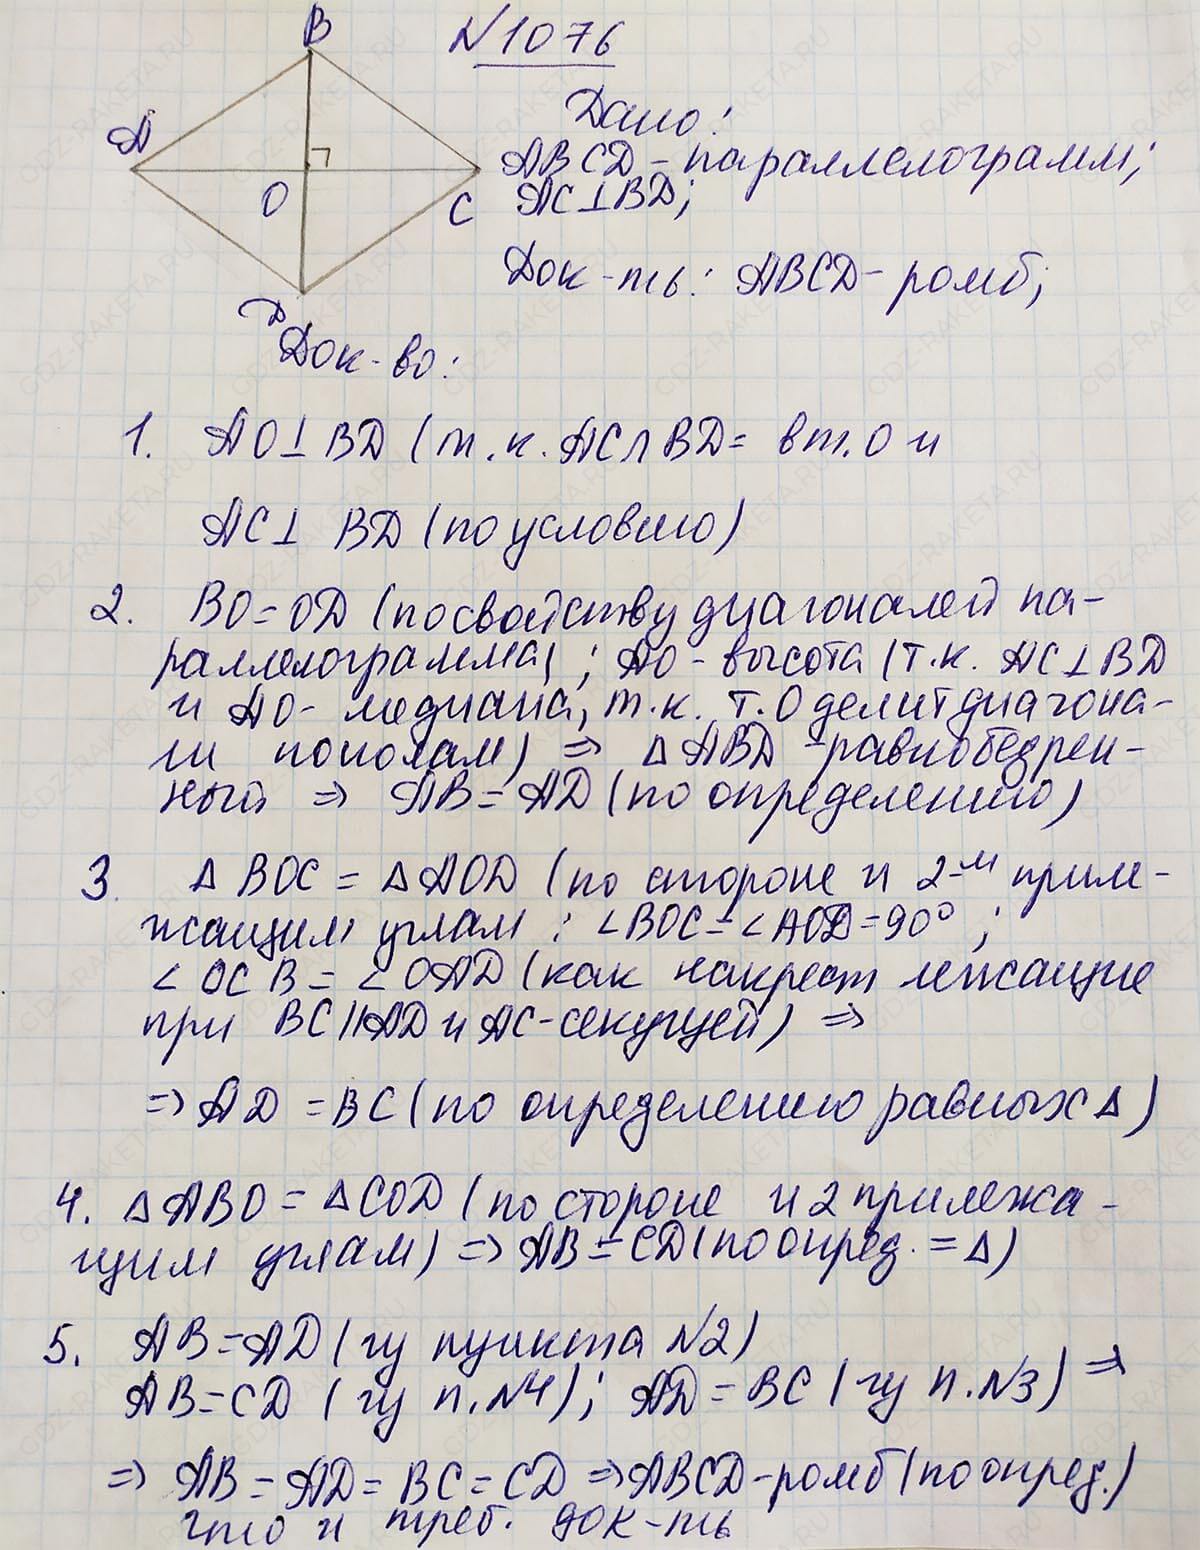 N1076
B
A
O
C
D
Дано:
ABCD - параллелограмм;
AC⊥BD;
Док-ть: ABCD - ромб;
Док-во:
1. AO⊥BD (т.к. AC∩BD= в т.O и
AC⊥ BD (по условию)
2. BO=OD (по свойству диагоналей па-
раллелограмма); AO - высота (т.к. AC⊥BD
и AO - медиана, т.к. т.O делит диагона-
ли пополам) ⇒ ∆ABD - равнобедрен-
ный ⇒ AB=AD (по определению)
3. ∆ BOC = ∆AOD (по стороне и 2-м приле-
жащим углам: ∠BOC=∠AOD=90°;
∠OCB=∠OAD (как накрест лежащие
при BC||AD и AC-секущей) ⇒
⇒ AD = BC (по определению равных ∆)
4. ∆ABO = ∆COD (по стороне и 2 прилежа-
щим углам) ⇒ AB=CD (по опред. = ∆)
5. AB=AD (из пункта N2)
AB=CD (из п.N4); AD=BC (из п.N3) ⇒
⇒ AB=AD=BC=CD ⇒ ABCD - ромб (по опред.)
что и треб. док-ть
GDZ-RAKETA.RU